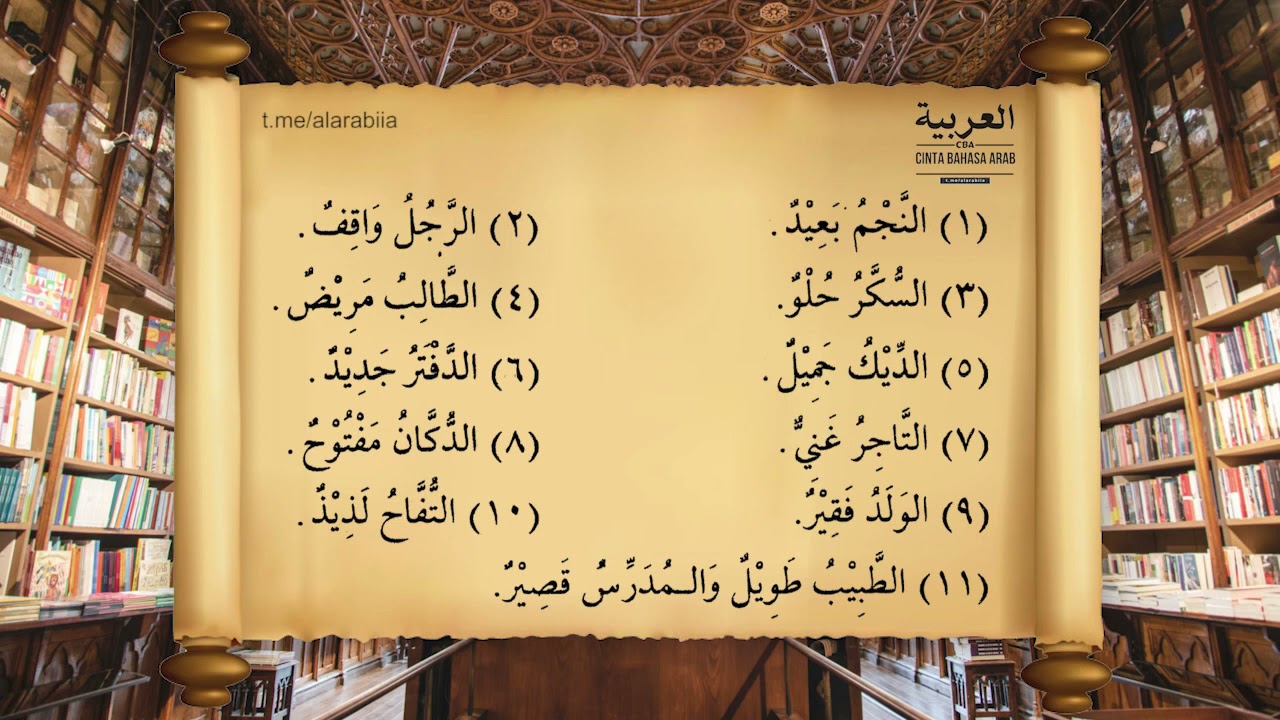 t.me/alarabiia
العربية
CBA
CINTA BAHASA ARAB
t.me/alarabiia
(١) النَّجْمُ بَعِيْدٌ.
(٢) الرَّجُلُ وَاقِفٌ.
(٣) السُّكَّرُ حُلْوٌ.
(٤) الطَّالِبُ مَرِيْضٌ.
(٥) الدِّيْكُ جَمِيْلٌ.
(٦) الدَّفْتَرُ جَدِيْدٌ.
(٧) التَّاجِرُ غَنِيٌّ.
(٨) الدُّكَّانُ مَفْتُوْحٌ.
(٩) الوَلَدُ فَقِيْرٌ.
(١٠) التُّفَّاحُ لَذِيْذٌ.
(١١) الطَّبِيْبُ طَوِيْلٌ وَالـمُدَرِّسُ قَصِيْرٌ.